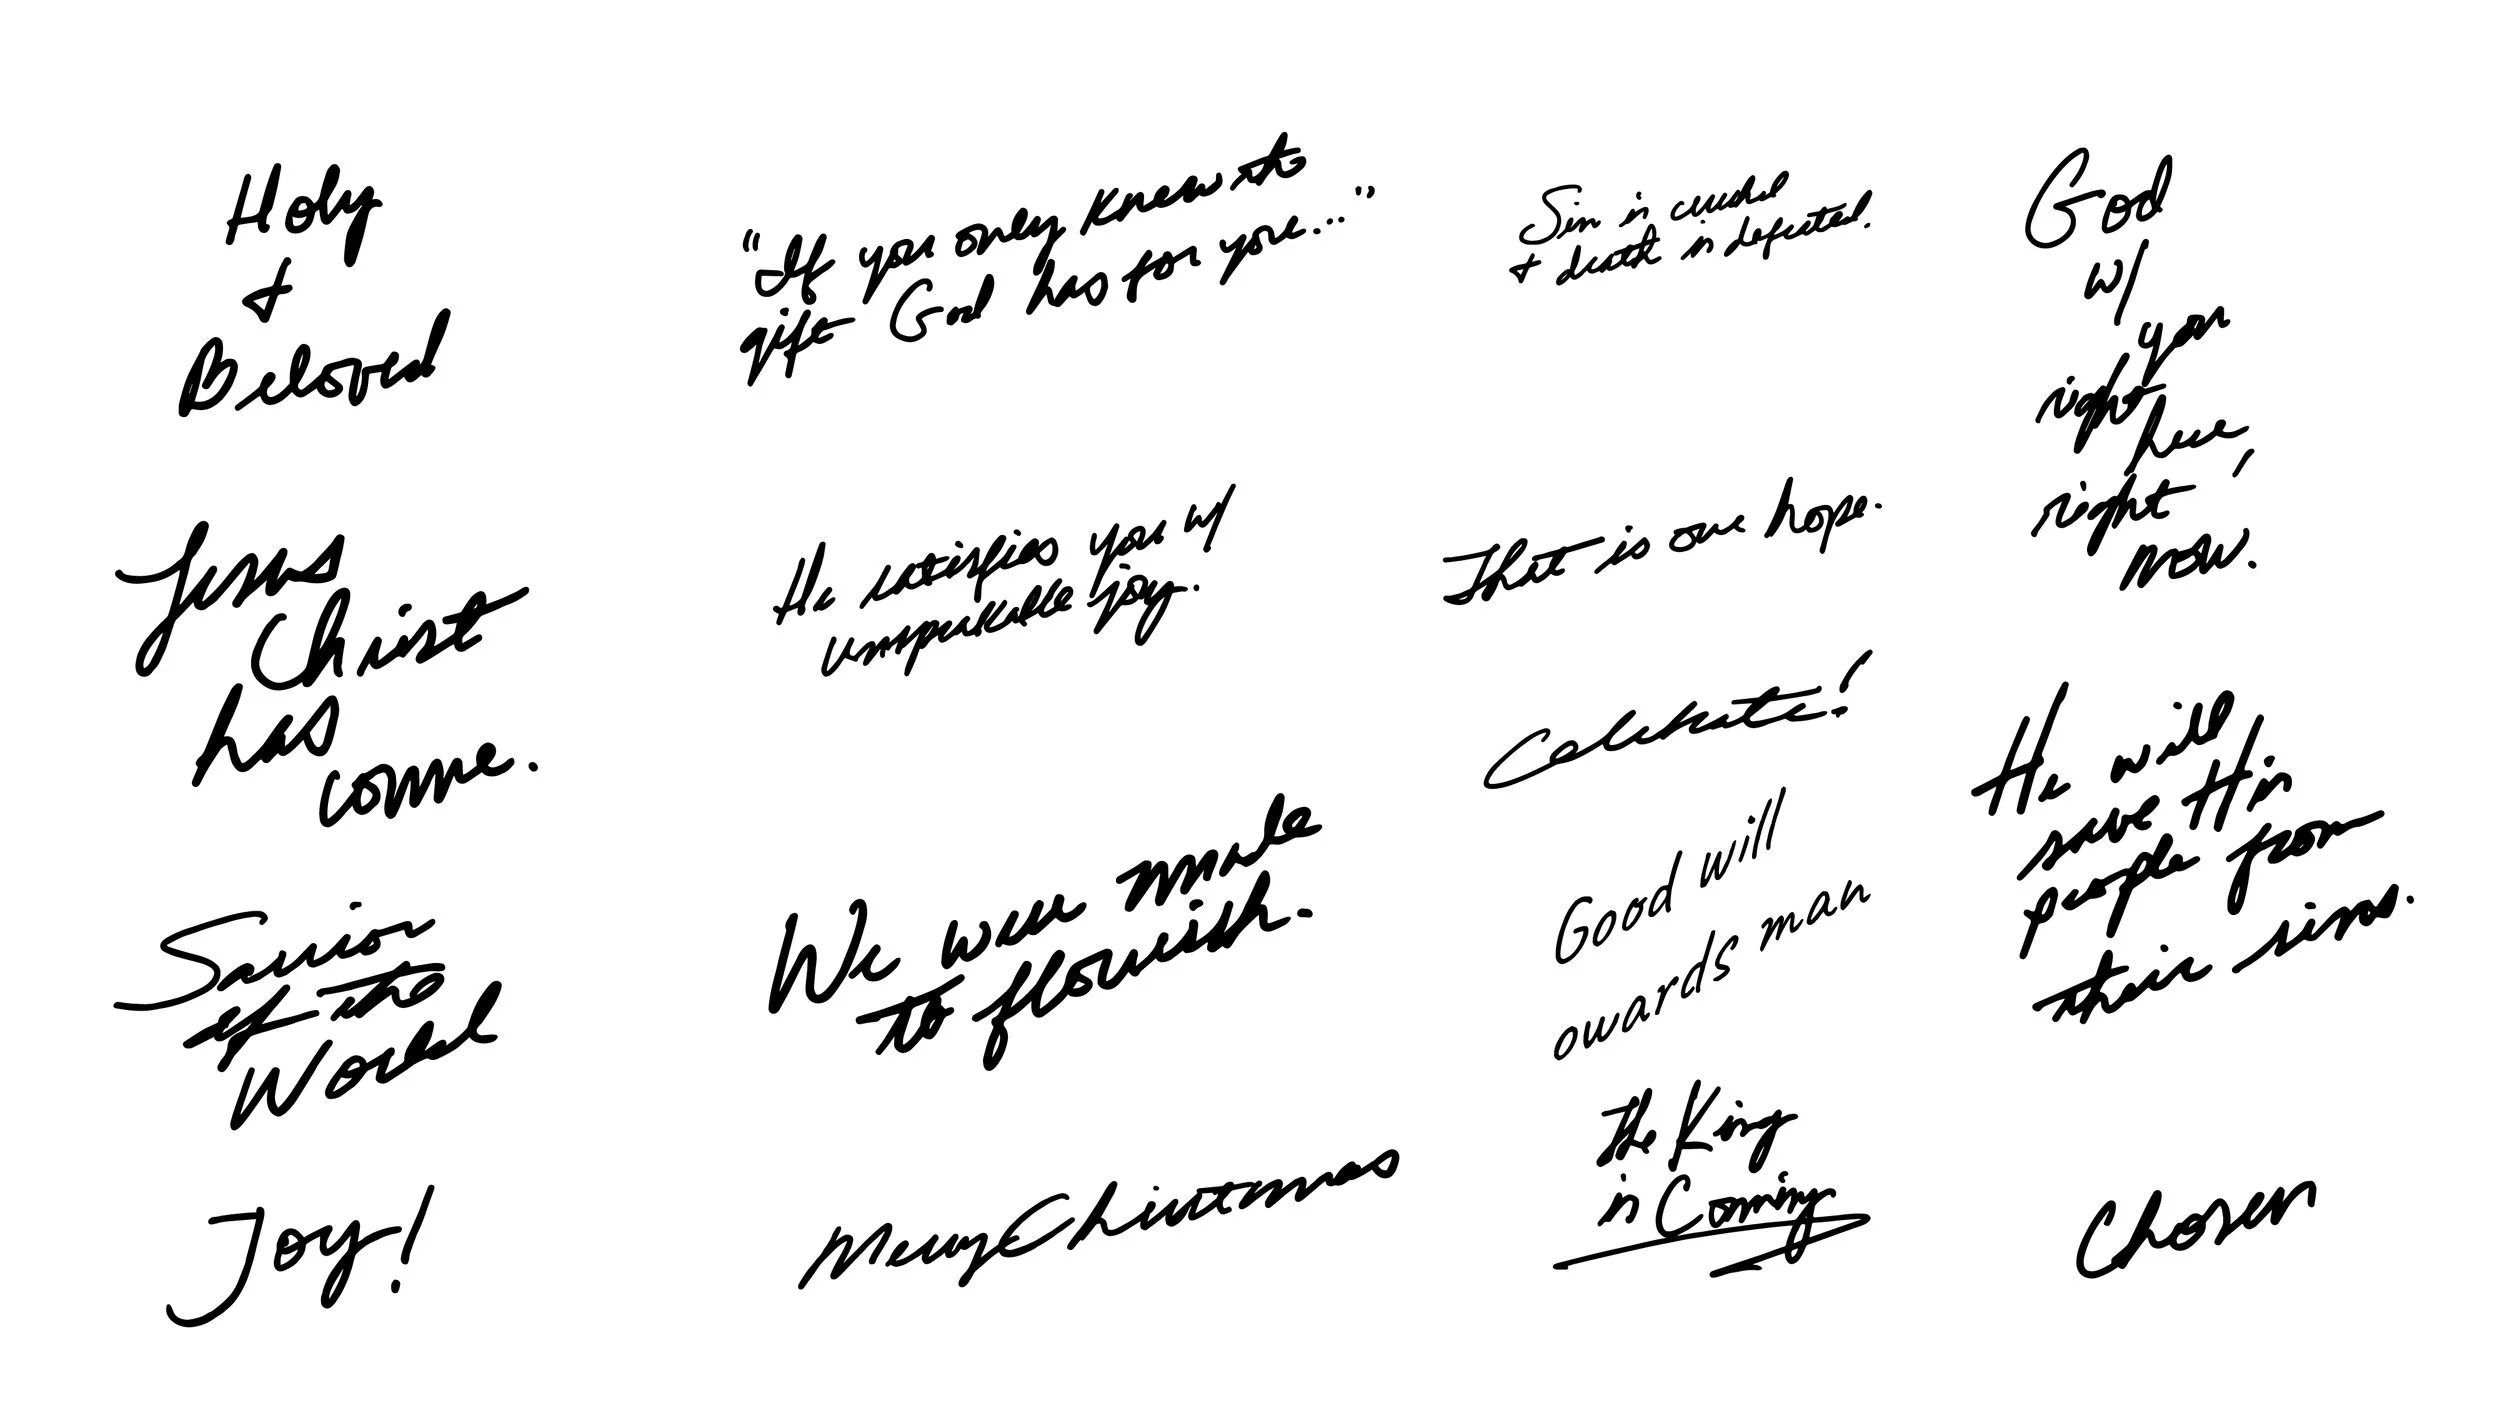 Holy
&
Beloved
Jesus
Christ
has
come.
Savior
of the
World
Joy!
"If you only knew the
gift God has for you...."
He satisfies you w/
compassion
We wise Men
Magi still
merryChristmas
Sin is ended
& death is defeated!
Jesus is our hope.
Celebrate!
Good will
towards men
The King
is Coming
God
w/
you
right
here,
right
now.
He will
save His
people from
their sins.
Chosen